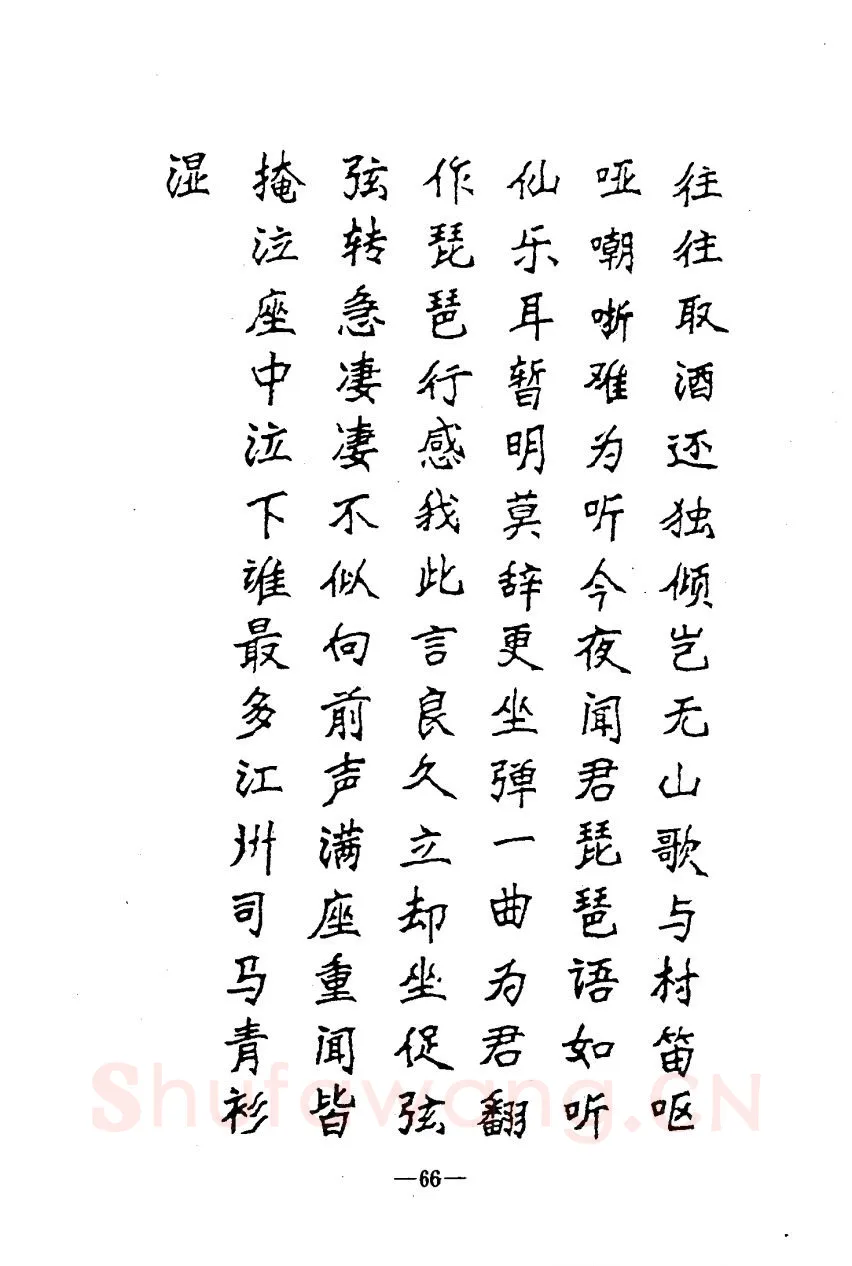 往往取酒还独倾岂无山歌与村笛呕
哑嘲哳难为听今夜闻君琵琶语如听
仙乐耳暂明莫辞更坐弹一曲为君翻
作琵琶行感我此言良久立却坐促弦
弦转急凄凄不似向前声满座重闻皆
掩泣座中泣下谁最多江州司马青衫
湿
Shufawang.CN
—66—